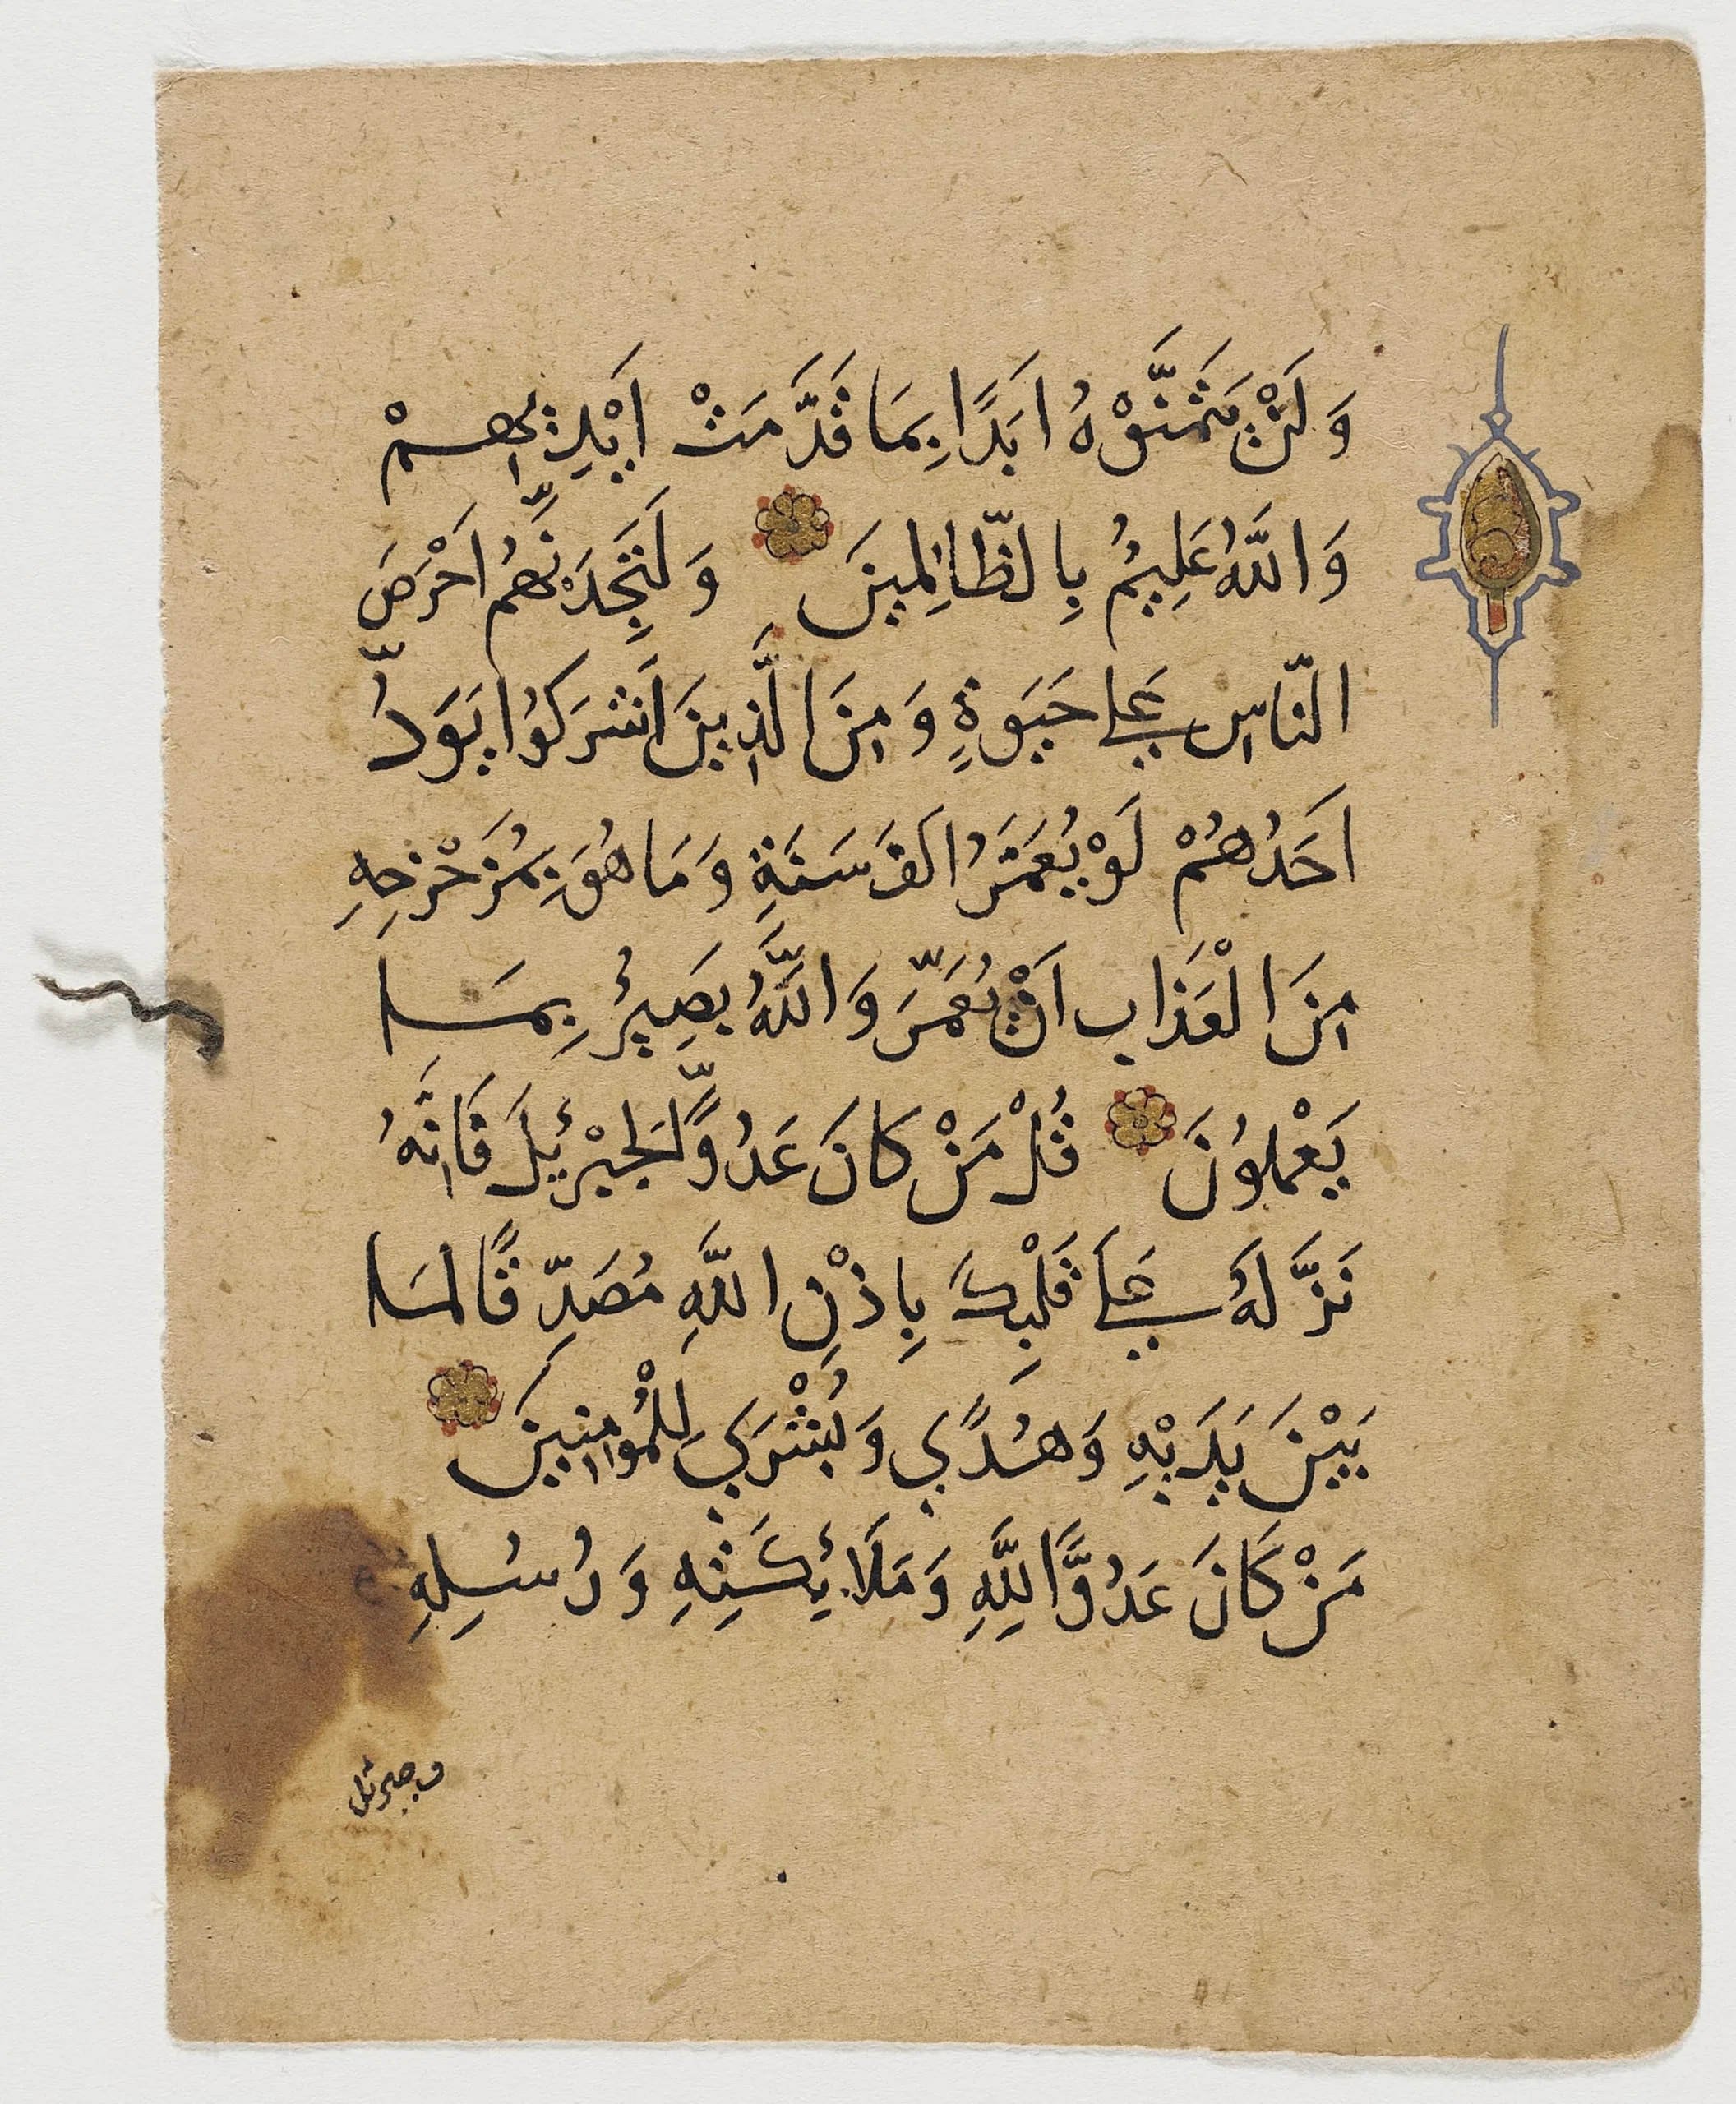 وَلَنْ يَتَمَنَّوْهُ اَبَدًا بِمَا قَدَّمَتْ اَيْدِيهِمْ
وَاللَّهُ عَلِيمٌ بِالظَّالِمِينَ وَلَتَجِدَنَّهُمْ اَحْرَصَ
النَّاسِ عَلٰى حَيَوةٍ وَمِنَ الَّذِينَ اَشْرَكُوا يَوَدُّ
اَحَدُهُمْ لَوْ يُعَمَّرُ اَلْفَ سَنَةٍ وَمَا هُوَ بِمُزَحْزِحِهِ
مِنَ الْعَذَابِ اَنْ يُعَمَّرَ وَاللَّهُ بَصِيرٌ بِمَا
يَعْمَلُونَ قُلْ مَنْ كَانَ عَدُوًّا لِجِبْرِئِيلَ فَاِنَّهُ
نَزَّلَهُ عَلٰى قَلْبِكَ بِاِذْنِ اللَّهِ مُصَدِّقًا لِمَا
بَيْنَ يَدَيْهِ وَهُدًى وَبُشْرٰى لِلْمُؤْمِنِينَ
مَنْ كَانَ عَدُوًّا لِلَّهِ وَمَلَائِكَتِهِ وَرُسُلِهِ
وجبرئل